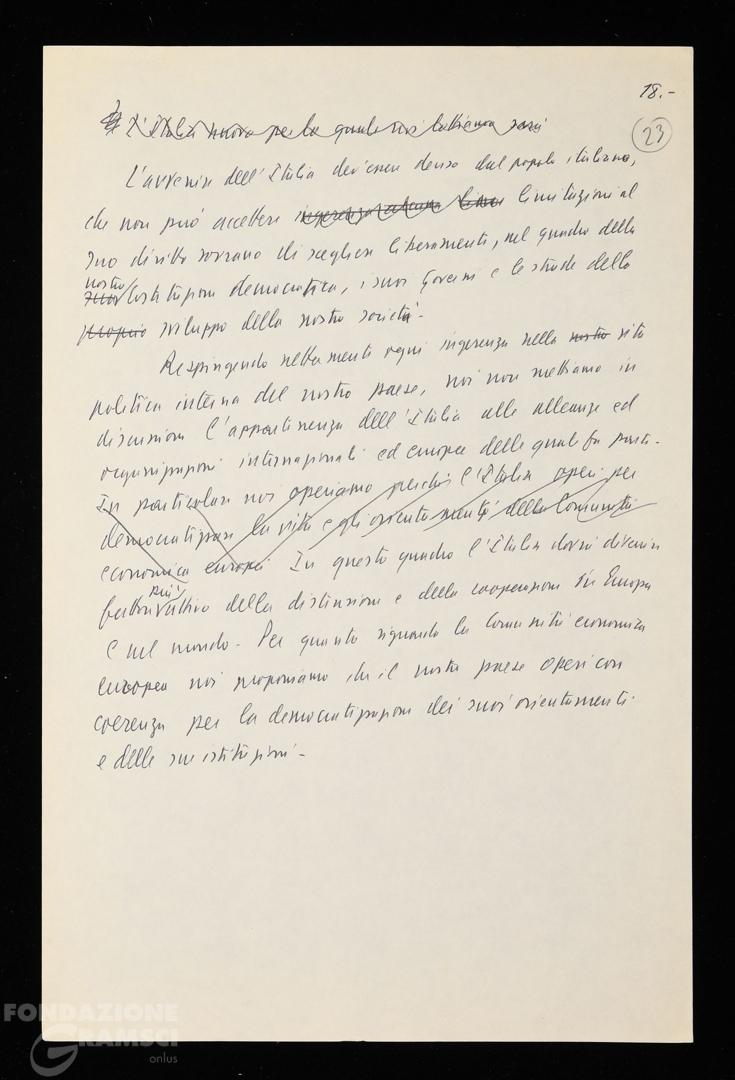 18.-
23
L'Italia nuova per la quale noi lottiamo sarà
L'avvenire dell'Italia dev'essere deciso dal popolo italiano,
che non può accettare ingerenza alcuna limitazioni al
suo diritto sovrano di scegliere liberamente, nel quadro della
nostra
sua Costituzione democratica, i suoi governi e le strade dello
proprio sviluppo della nostra società.
Respingendo nettamente ogni ingerenza nella nostra vita
politica interna del nostro paese, noi non mettiamo in
discussione l'appartenenza dell'Italia alle alleanze ed
organizzazioni internazionali ed europee delle quali fa parte.
In particolare noi operiamo perché l'Italia operi per
democratizzare la vita e gli orientamenti della Comunità
economica europea In questo quadro l'Italia dovrà divenire
più
fattore attivo della distensione e della cooperazione in Europa
e nel mondo. Per quanto riguarda la Comunità economica
europea noi proponiamo che il nostro paese operi con
coerenza per la democratizzazione dei suoi orientamenti
e delle sue istituzioni.-
FONDAZIONE
GRAMSCI
onlus